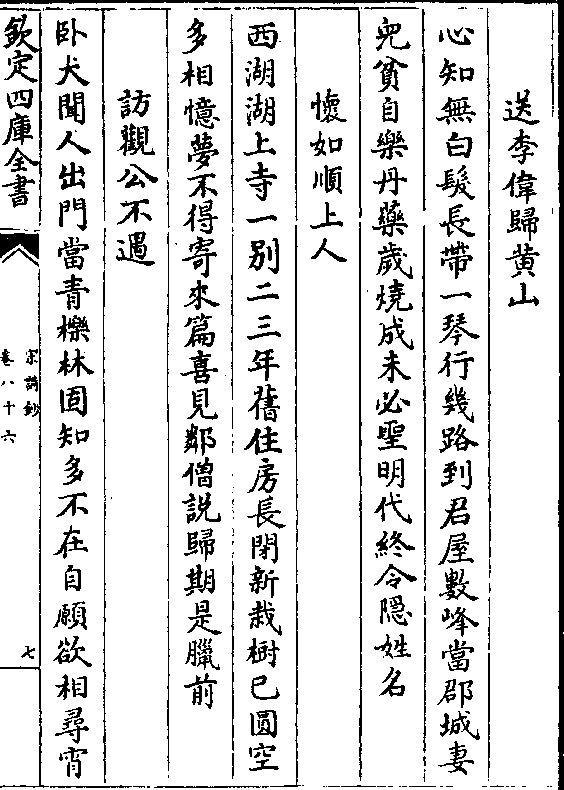 送李偉歸黄山
心知無白髮長帶一琴行幾路到君屋數峰當郡城妻
兒貧自樂丹藥歲燒成未必聖明代終令隠姓名
懷如順上人
西湖湖上寺一别二三年舊住房長閉新栽樹已圓空
多相憶夢不得寄來篇喜見鄰僧説歸期是臘前
訪觀公不遇
卧犬聞人出門當青櫟林固知多不在自願欲相尋宵
欽定四庫全書
宋詩鈔
卷八十六
七